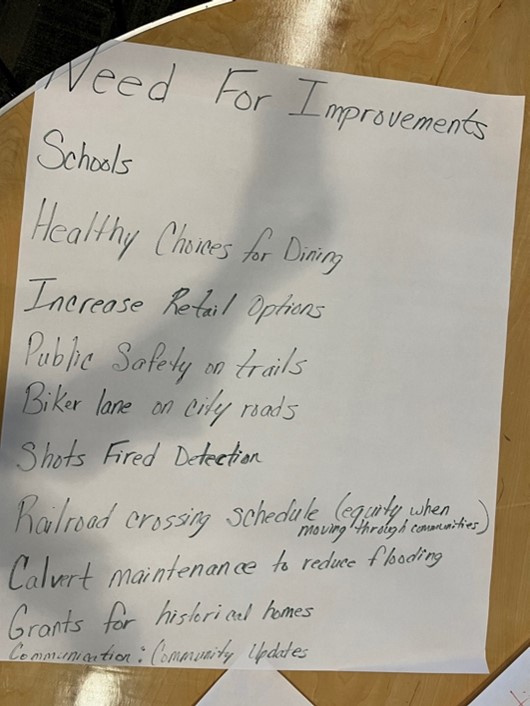 Need For Improvements
Schools
Healthy Choices for Dining
Increase Retail Options
Public Safety on trails
Biker lane on city roads
Shots Fired Detection
Railroad crossing schedule (equity when
moving through communities)
Calvert maintenance to reduce flooding
Grants for historical homes
Communication: Community Updates